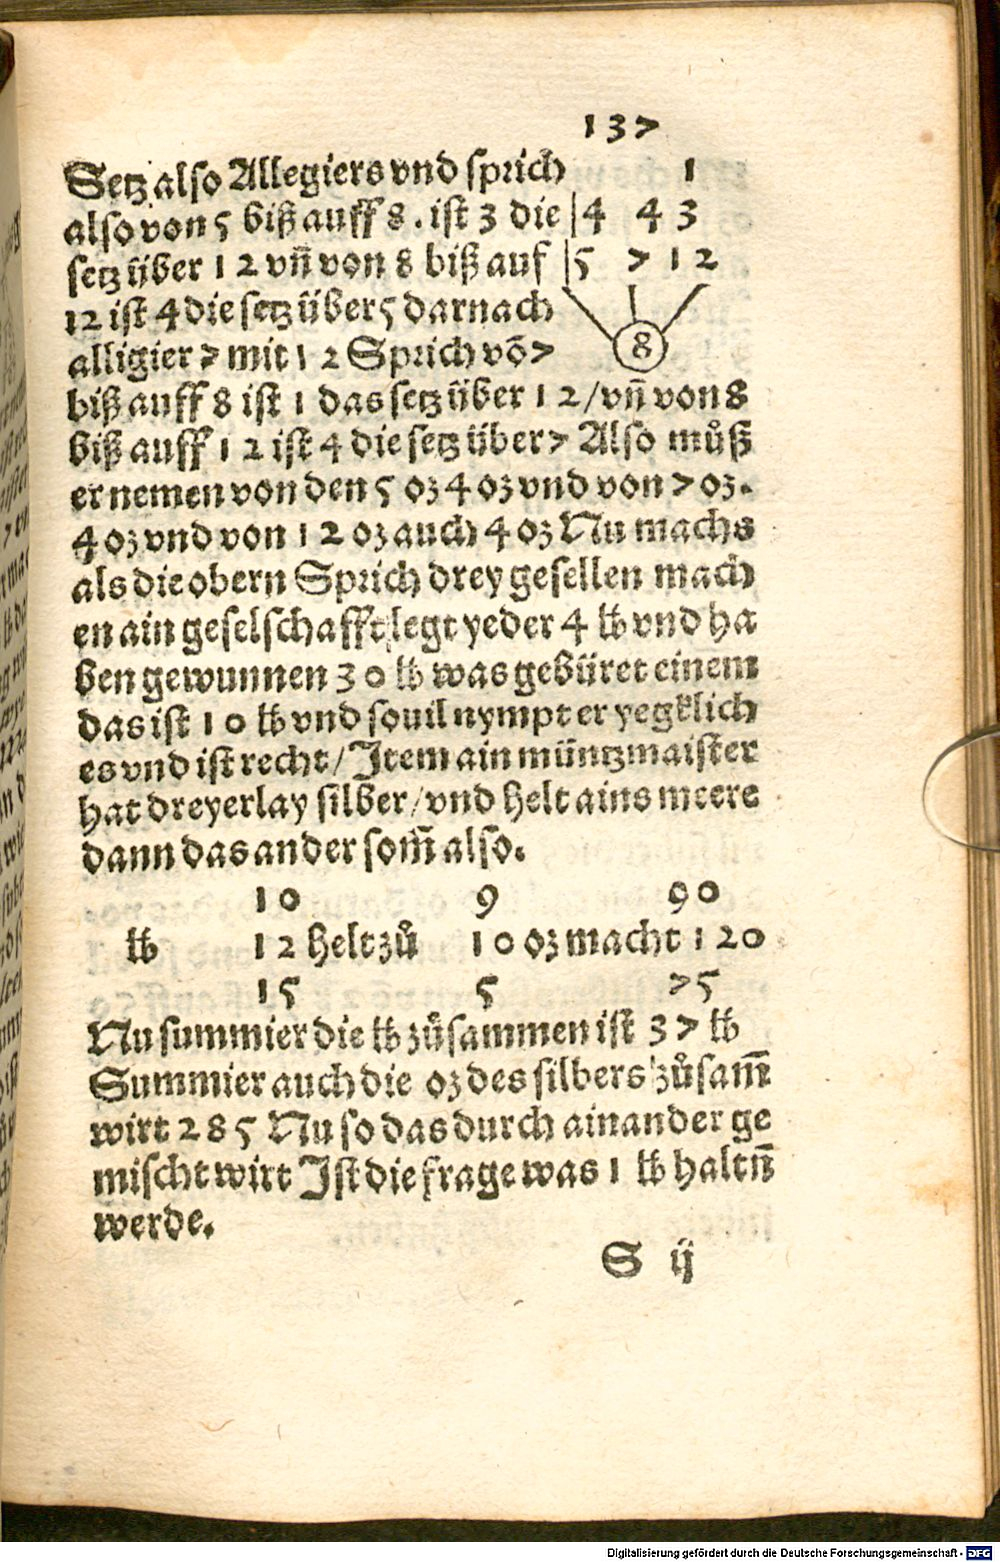 137
Setz also Allegiers vnd sprich 1
also von 5 biß auff 8. ist 3 die 4 4 3
setz über 12 vñ von 8 biß auf 5 7 12
12 ist 4 die setz über 5 darnach
alligier 7 mit 12 Sprich võ 7 8
biß auff 8 ist 1 das setz über 12/vñ von 8
biß auff 12 ist 4 die setz über 7 Also můß
er nemen von den 5 oz 4 oz vnd von 7 oz.
4 oz vnd von 12 oz auch 4 oz Nu machs
als die obern Sprich drey gesellen mach
en ain geselschafft legt yeder 4 ℔ vnd ha
ben gewunnen 30 ℔ was gebüret einem
das ist 10 ℔ vnd souil nympt er yegklich
es vnd ist recht/Item ain müntzmaister
hat dreyerlay silber/vnd helt ains meere
dann das ander som̃ also.
10 9 90
℔ 12 helt zů 10 oz macht 120
15 5 75
Nu summier die ℔ zůsammen ist 37 ℔
Summier auch die oz des silbers zůsam̃
wirt 285 Nu so das durch ainander ge
mischt wirt Ist die frage was 1 ℔ haltñ
werde.
S ij
Digitalisierung gefördert durch die Deutsche Forschungsgemeinschaft - DFG